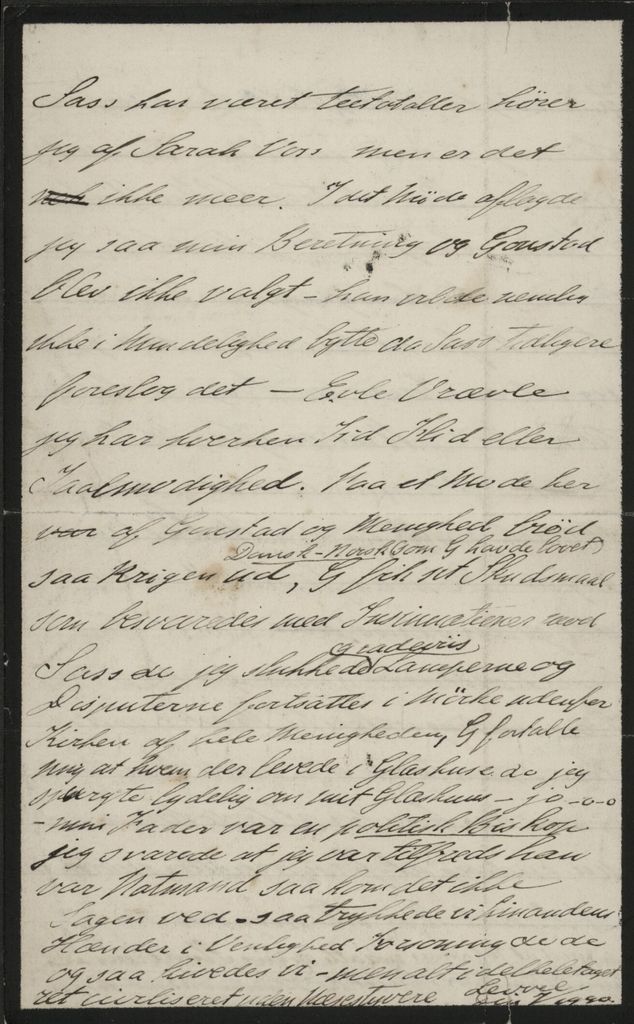 Sass har været Teetotaller hører
jeg af Sarah Voss men er det
ikke meer. I det Møde aflagde
jeg saa min Beretning og Goustad
blev ikke valgt – han vilde nemlig
ikke i Mindelighed bytte da Sass tidligere
foreslog det – Evle Vrævle
jeg har hverken Tid Flid eller
Taalmodighed. Paa et Møde her
var af Goustad og Menighed brød
Dansk-Norsk (som G havde lovet)
saa Krigen ud, G fik sit Skudsmaal
som besvaredes med Insinuationer mod
gradeviis
Sass da jeg slukkede Lamperne og
Disputerne fortsattes i Mörke udenfor
Kirken af hele Menigheden, G fortalte
mig at hvem der levede i Glashuse da jeg
spurgte lydelig om mit Glashuus – jo -o-o
- min Fader var en politisk Biskop
jeg svarede at jeg var tilfreds han
var Natmand saa kom det ikke
Sagen ved – saa trykkede vi hinandens
Hænder i Venlighed Forsoning
og saa hivedes vi – men alt i det hele taget
ret civiliseret uden Næsestyvere